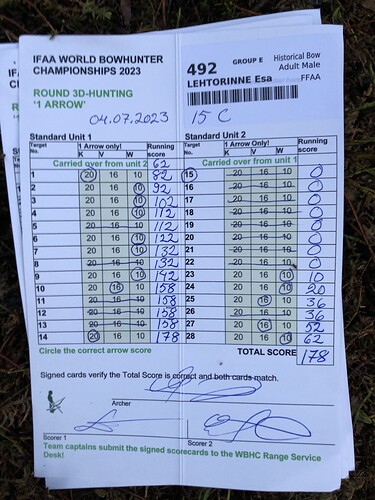 IFAA WORLD BOWHUNTER
CHAMPIONSHIPS 2023
ROUND 3D-HUNTING
'1 ARROW'
04.07.2023
492 GROUP E Historical Bow
Adult Male
LEHTORINNE Esa FFAA
15 C
Standard Unit 1
Target No. 1 Arrow Only! Running score
K V W
Carried over from unit 2 62
1 20 16 10 82
2 20 16 10 92
3 20 16 10 102
4 20 16 10 112
5 20 16 10 112
6 20 16 10 122
7 20 16 10 132
8 20 16 10 132
9 20 16 10 142
10 20 16 10 158
11 20 16 10 158
12 20 16 10 158
13 20 16 10 158
14 20 16 10 178
Circle the correct arrow score
Standard Unit 2
Target No. 1 Arrow Only! Running score
K V W
Carried over from unit 1
15 20 16 10 0
16 20 16 10 0
17 20 16 10 0
18 20 16 10 0
19 20 16 10 0
20 20 16 10 0
21 20 16 10 0
22 20 16 10 0
23 20 16 10 10
24 20 16 10 20
25 20 16 10 36
26 20 16 10 36
27 20 16 10 52
28 20 16 10 62
TOTAL SCORE 178
Signed cards verify the Total Score is correct and both cards match.
Archer
Scorer 1
Scorer 2
Team captains submit the signed scorecards to the WBHC Range Service
Desk!